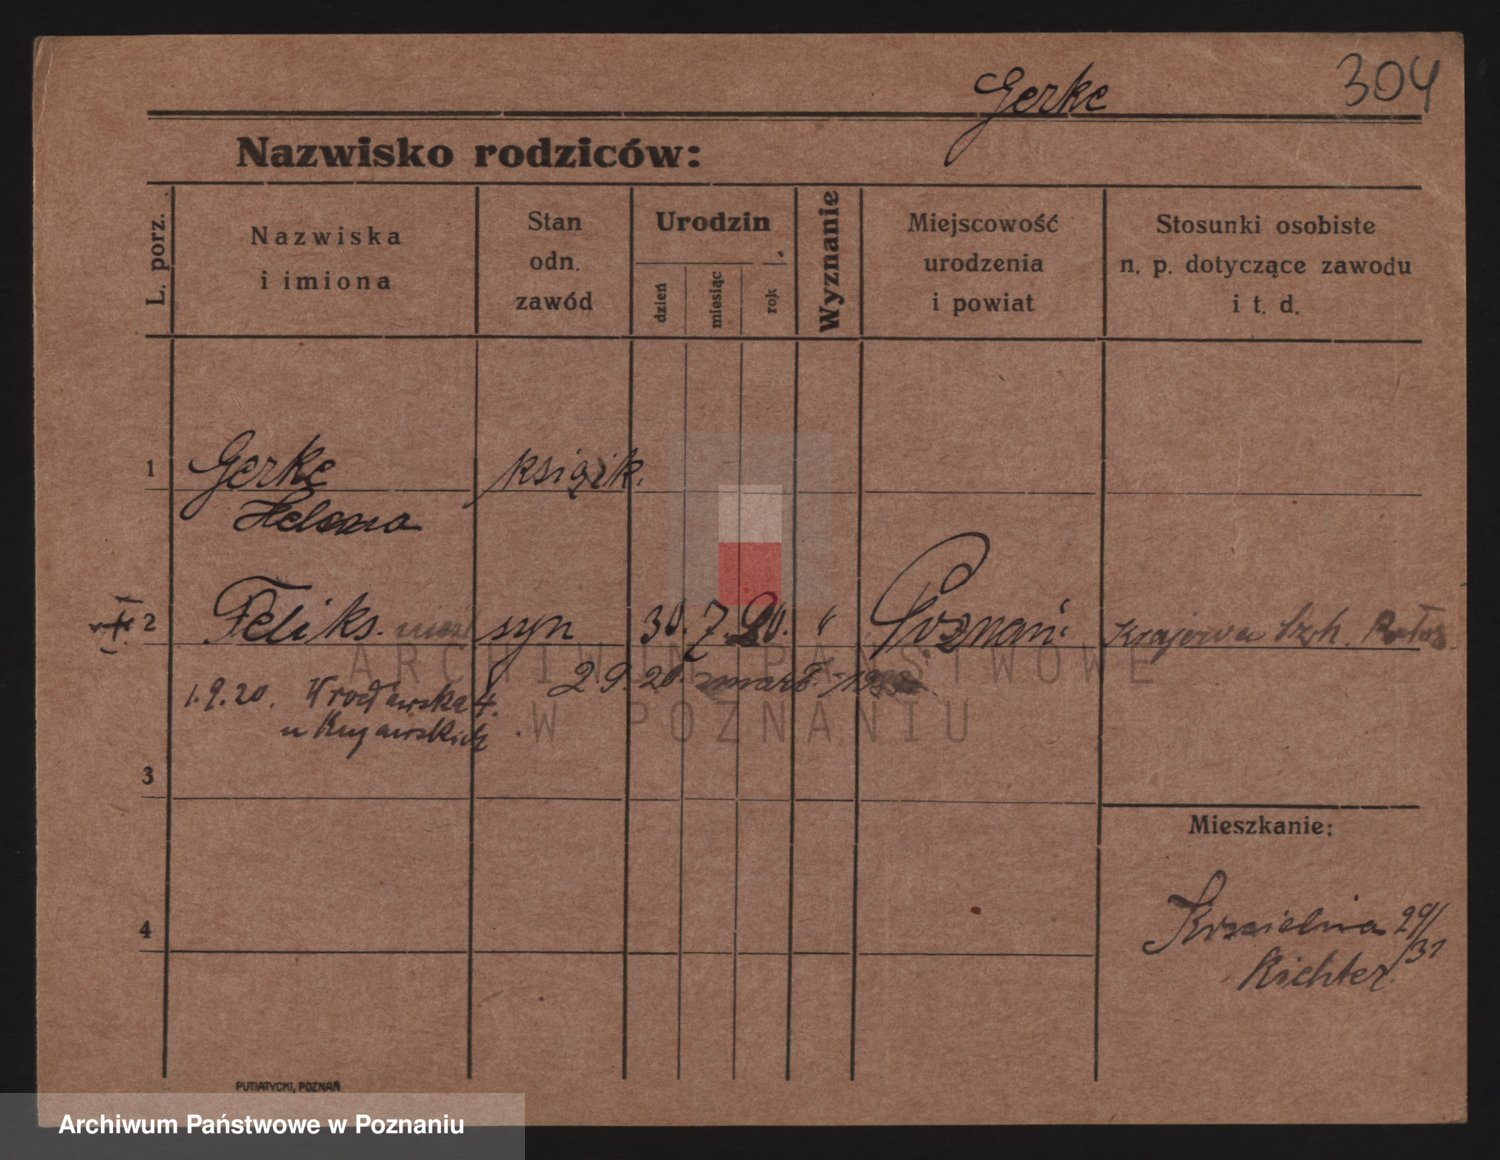 Gerke
304
Nazwisko rodziców:
L. porz.
Nazwiska
i imiona
Stan
odn.
zawód
Urodzin
dzień
miesiąc
rok
Wyznanie
Miejscowość
urodzenia
i powiat
Stosunki osobiste
n. p. dotyczące zawodu
i t. d.
1
Gerke
książk.
Helena
2
Feliks
syn
30. 7. 20.
"
Poznań
Krajowa Szk.
ARCHIWUM PAŃSTWOWE
W POZNANIU
1.9.20. Wrocławska 4.
2 9. 20.
u Kujawskich
3
Mieszkanie:
4
29/31
Richter
PUTIATYCKI, POZNAŃ
Archiwum Państwowe w Poznaniu